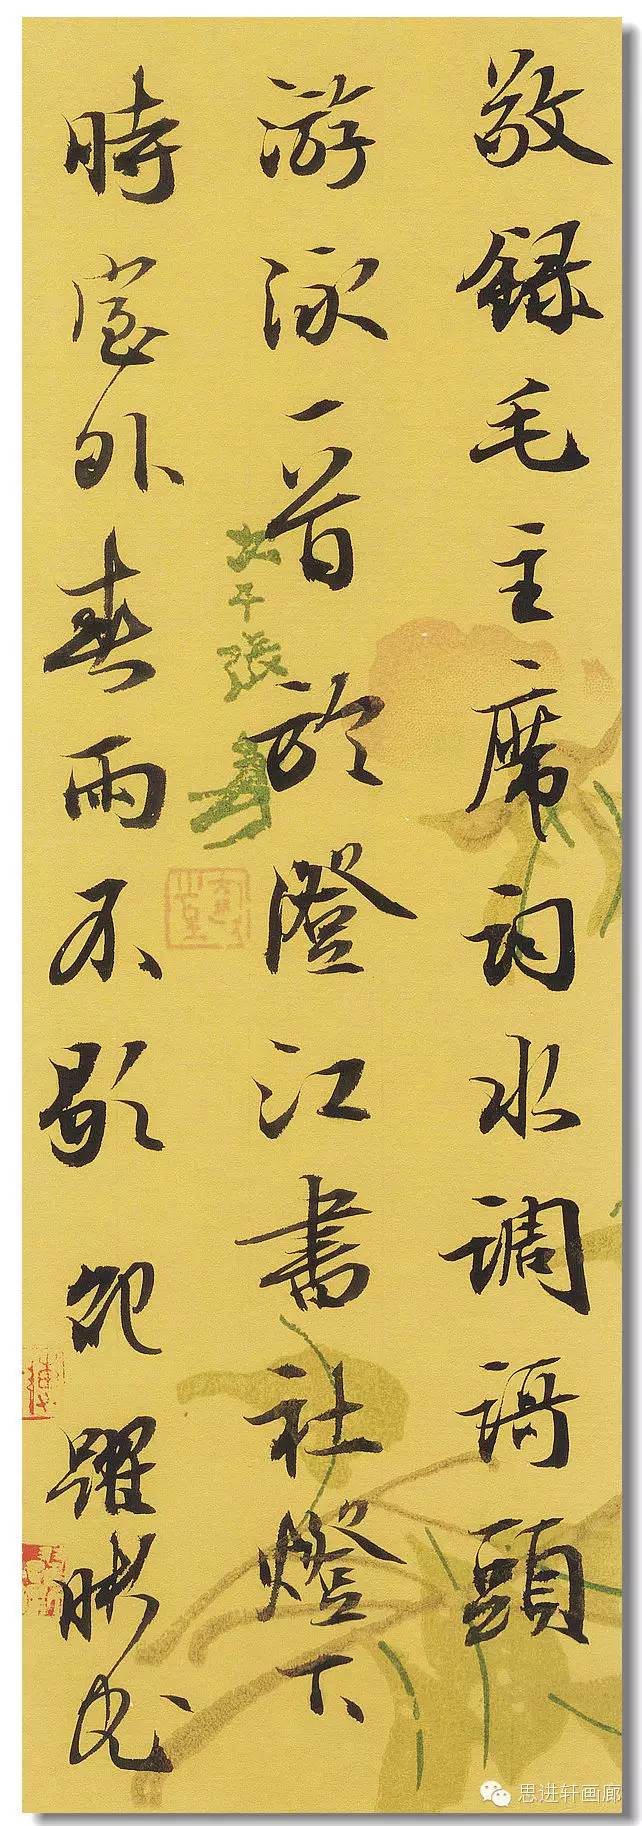 敬録毛主席词水调謌頭
游泳一首於澄江書社燈下
時窗外春雨不歇
大千張爰
思进轩画廊